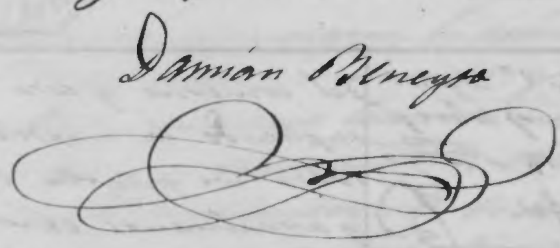 Damián Beneyto